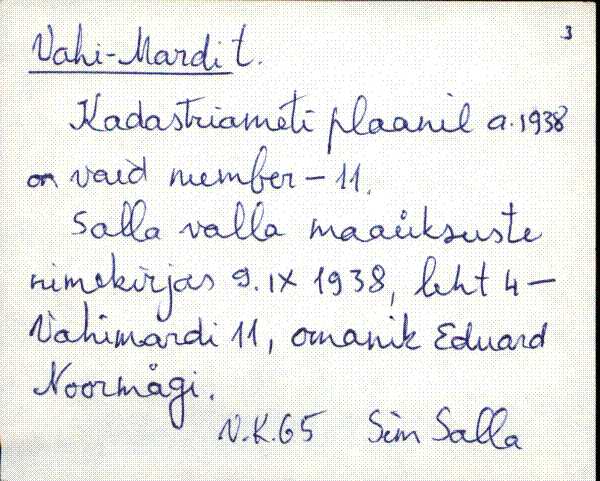 3
Vahi-Mardi t.
Kadastriameti plaanil a. 1938
on vaid number – 11.
Salla valla maaüksuste
nimekirjas 9. IX 1938, leht 4 –
Vahimardi 11, omanik Eduard
Noormägi.
V.K.65 Sim Salla